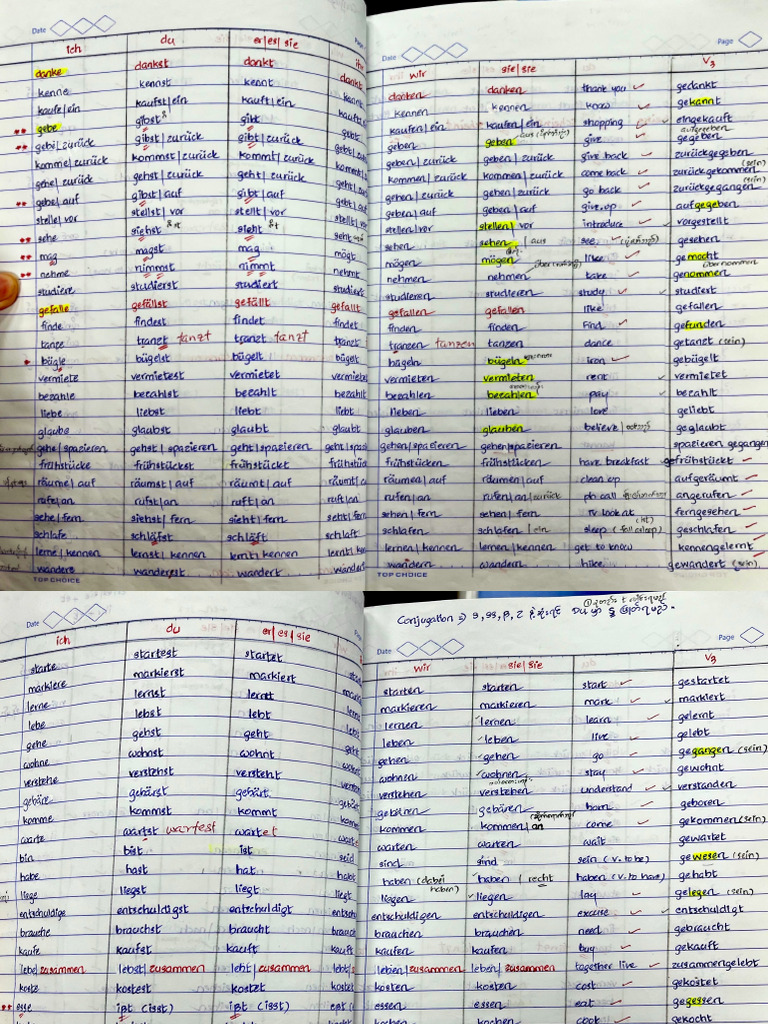 Date
ich du er/es/sie ihr
danke dankst dankt dankt
kenne kennst kennt kennt
kaufe/ein kaufst/ein kauft/ein kauft
** gebe gibst gibt gebt
** gebe/zurück gibst/zurück gibt/zurück gebt/
komme/zurück kommst/zurück kommt/zurück kommt/
gehe/zurück gehst/zurück geht/zurück geht/
** gebe/auf gibst/auf gibt/auf gebt/
stelle/vor stellst/vor stellt/vor stellt/v
** sehe siehst sieht seht
** mag magst mag mögt
** nehme nimmst nimmt nehmt
studiere studierst studiert studiert
gefalle gefällst gefällt gefallt
finde findest findet findet
tanze tranzt tanzt tranzt tanzt tranzt
* bügle bügelst bügelt bügelt
vermiete vermietest vermietet vermietet
bezahle bezahlst bezahlt bezahlt
liebe liebst liebt liebt
glaube glaubst glaubt glaubt
gehe/spazieren gehst/spazieren geht/spazieren geht/spazi
frühstücke frühstückst frühstückt frühst
räume/auf räumst/auf räumt/auf räumt/
rufe/an rufst/an ruft/an ruft/an
sehe/fern siehst/fern sieht/fern seht/fer
schlafe schläfst schläft schlaft
lerne/kennen lernst/kennen lernt/kennen lernt/ke
wandere wanderst wandert wandert
TOP CHOICE
Date Page
wir sie/sie V3
danken danken thank you gedankt
kennen kennen know gekannt
kaufen/ein kaufen/ein shopping eingekauft
geben geben aus give gegeben ausgegeben
geben/zurück geben/zurück give back zurückgegeben
kommen/zurück kommen/zurück come back zurückgekommen (sein)
gehen/zurück gehen/zurück go back zurückgegangen (sein)
geben/auf geben/auf give up aufgegeben
stellen/vor stellen/vor introduce vorgestellt
sehen sehen/aus see gesehen
mögen mögen like gemocht
nehmen nehmen take genommen übernommen
studieren studieren study studiest
gefallen gefallen like gefallen
finden finden find gefunden
tranzen tanzen tanzen dance getanzt (sein)
bügeln bügeln iron gebügelt
vermieten vermieten rent vermietet
bezahlen bezahlen pay bezahlt
lieben lieben love geliebt
glauben glauben believe geglaubt
gehen/spazieren gehen/spazieren spazieren gegangen
frühstücken frühstücken have breakfast gefrühstückt
räumen/auf räumen/auf clean up aufgeräumt
rufen/an rufen/an/zurück ph call angerufen
sehen/fern sehen/fern TV look at ferngesehen
schlafen schlafen/ein sleep (fall asleep) geschlafen
lernen/kennen lernen/kennen get to know kennengelernt
wandern wandern hike gewandert (sein)
TOP CHOICE
Date
ich du er/es/sie
starte startest startet
markiere markierst markiert
lerne lernst lernt
lebe lebst lebt
gehe gehst geht
wohne wohnst wohnt
verstehe verstehst versteht
gebäre gebärst gebärt
komme kommst kommt
warte wartst wartest wartet
bin bist ist seid
habe hast hat habt
liege liegst liegt liegt
entschuldige entschuldigst entschuldigt entsch
brauche brauchst braucht brauch
kaufe kaufst kauft kauft
lebe/zusammen lebst/zusammen lebt/zusammen lebt/
koste kostest kostet kostet
** esse ißt (isst) ißt (isst)
Conjugation
Date Page
wir sie/sie V3
starten starten start gestartet
markieren markieren mark markiert
lernen lernen learn gelernt
leben leben live gelebt
gehen gehen go gegangen (sein)
wohnen wohnen stay gewohnt
verstehen verstehen understand verstanden
gebären gebären born geboren
kommen kommen/an come gekommen (sein)
warten warten wait gewartet
sind sind sein (v. to be) gewesen (sein)
haben (dabei haben) haben/recht haben (v. to have) gehabt
liegen liegen lay gelegen (sein)
entschuldigen entschuldigen excuse entschuldigt
brauchen brauchen need gebraucht
kaufen kaufen buy gekauft
leben/zusammen leben/zusammen together live zusammengelebt
kosten kosten cost gekostet
essen essen eat gegessen
kochen kochen cook gekocht